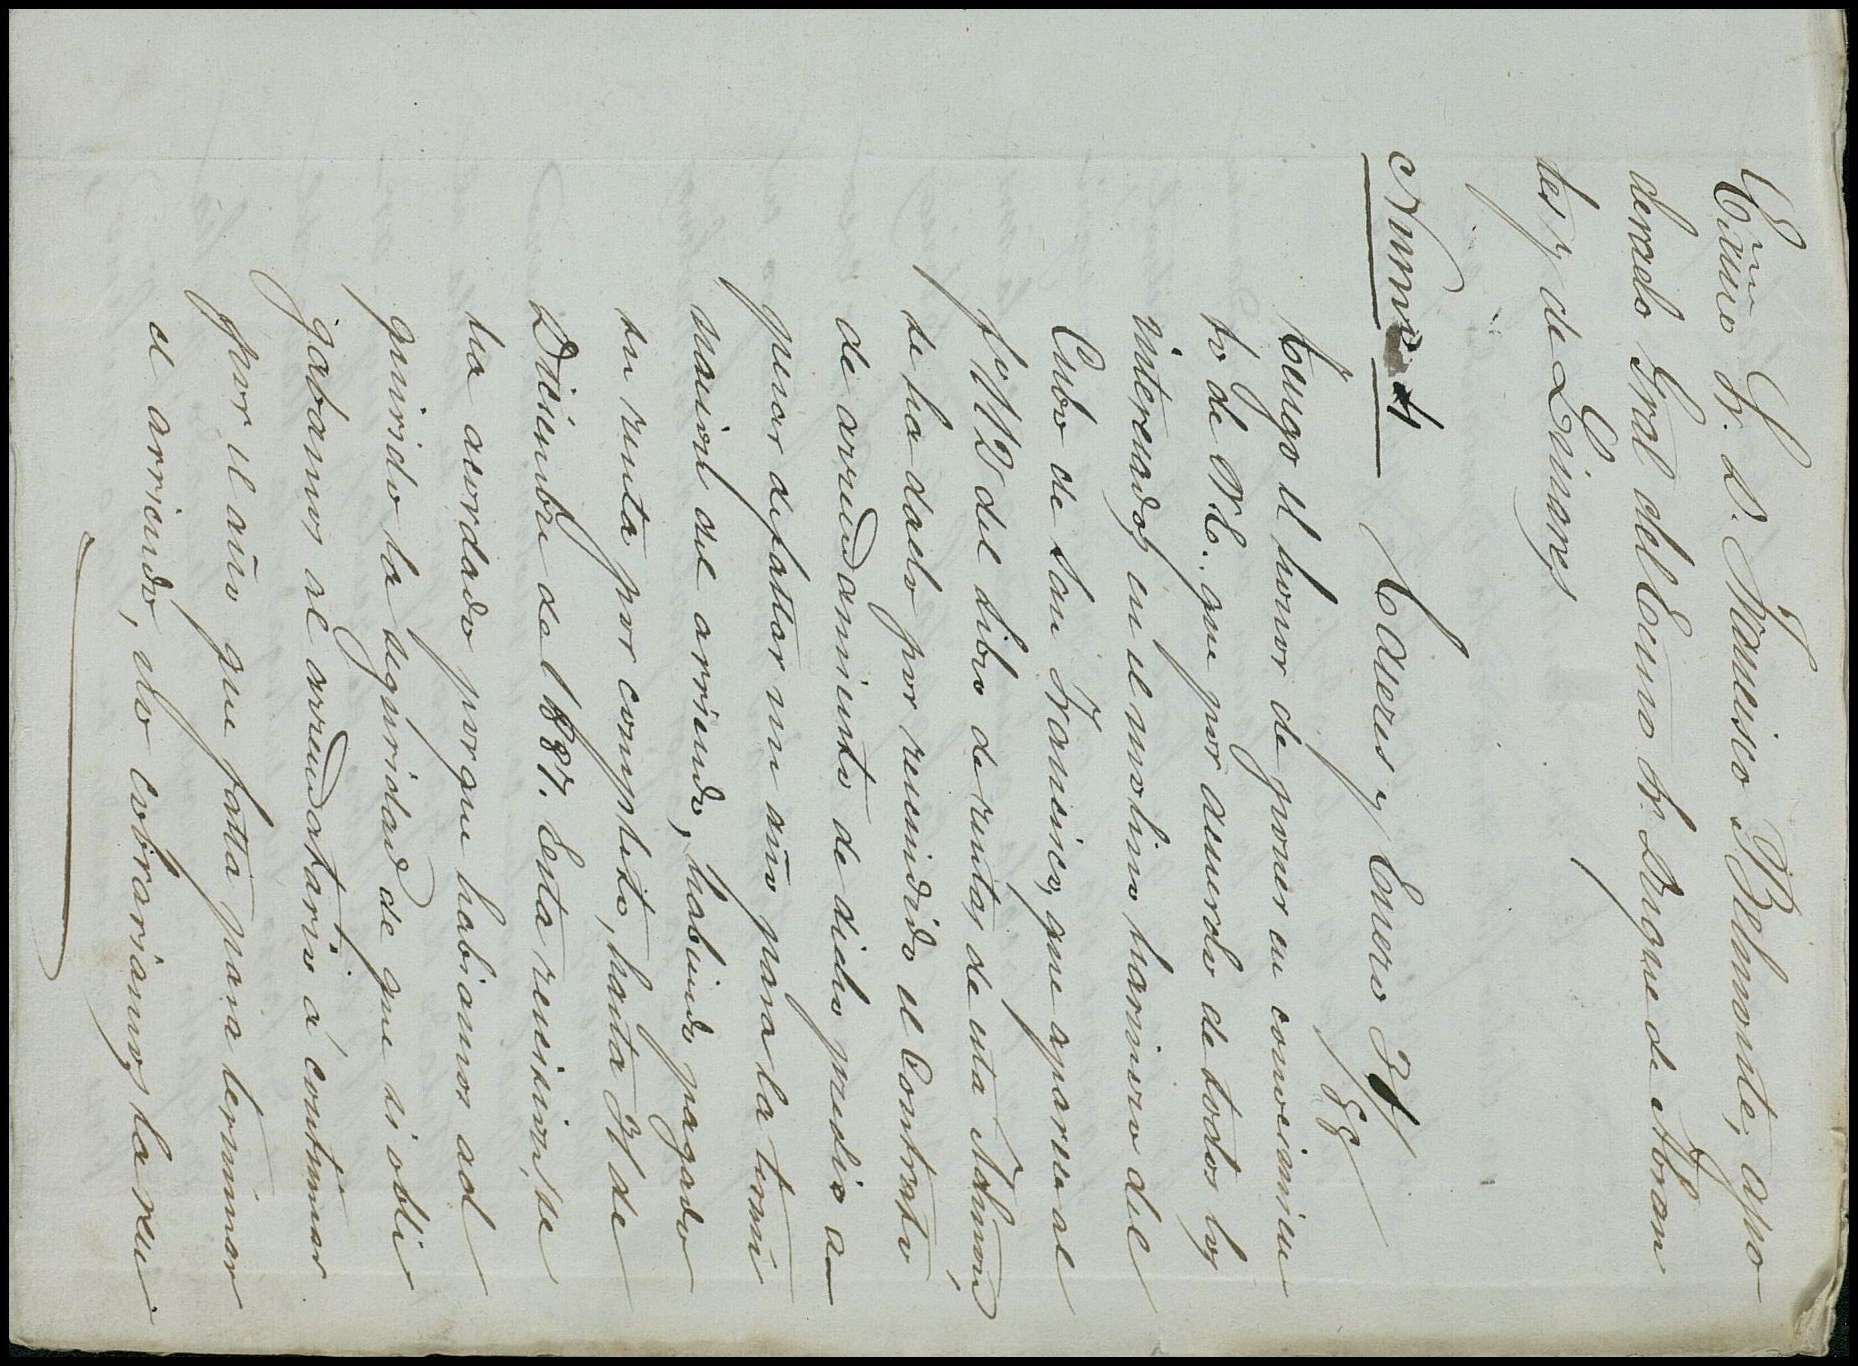 Excmo Sr. D. Francisco Belmonte, apo
derado Gral del Excmo Sr. Duque de Abran
tes y de Linares
Numro 4
Caceres y Enero 31/88
Tengo el honor de poner en conocimien
to de V.E. que por acuerdo de todos los
interesados en el molino harinero del
Cubo de San Francisco, que aparece al
fo 112 del Libro de rentas de esta Admon,
se ha dado por rescindido el Contrato
de arrendamiento de dicho predio a
pesar de faltar un año para la termi
nacion del arriendo, habiendo pagado
su renta por completo, hasta 31 de
Diciembre de 1887. Esta rescision, se
ha acordado porque habiamos ad
quirido la seguridad de que si obli
gabamos al arrendatario á continuar
por el año que falta para terminar
el arriendo, no cobrariamos la ren